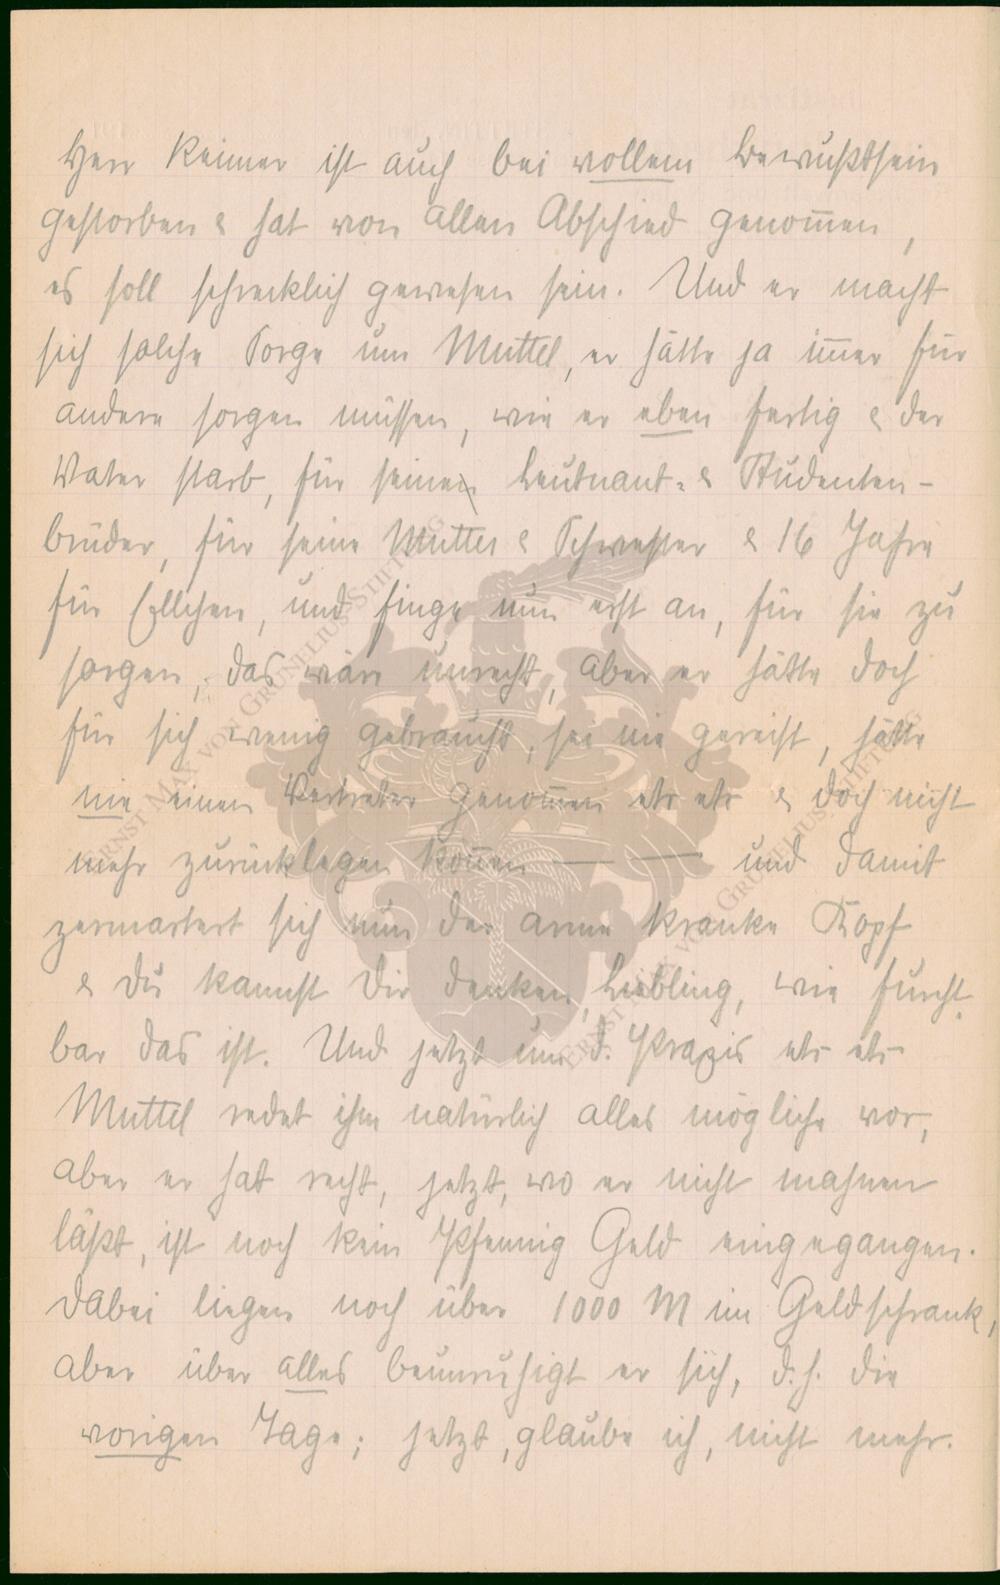 Herr Reimer ist auch bei vollem Bewußtsein
gestorben & hat von allen Abschied genom̄en,
es soll schrecklich gewesen sein. Und er macht
sich solche Sorge um Muttel, er hätte ja im̄er für
andere sorgen müssen, wie er eben fertig & der
Vater starb, für seine Leutnant- & Studenten-
brüder, für seine Mutter & Schwester & 16 Jahre
für Ellchen, und finge nun erst an, für sie zu
sorgen, das wäre unrecht, aber er hätte doch
für sich wenig gebraucht, sei nie gereist, hätte
nie einen Vertreter genom̄en etc etc & doch nicht
mehr zurücklegen kön̄en — — und damit
zermartert sich nun der arme kranke Kopf
& Du kannst Dir denken, Liebling, wie furcht-
bar das ist. Und jetzt um d. Praxis etc etc
Muttel redet ihm natürlich alles mögliche vor,
aber er hat recht, jetzt, wo er nicht mahnen
läßt, ist noch kein Pfennig Geld eingegangen.
Dabei liegen noch über 1000 M im Geldschrank,
aber über alles beunruhigt er sich, d. h. die
vorigen Tage; jetzt, glaube ich, nicht mehr.
ERNST MAX VON GRUNELIUS-STIFTUNG
ERNST MAX VON GRUNELIUS-STIFTUNG